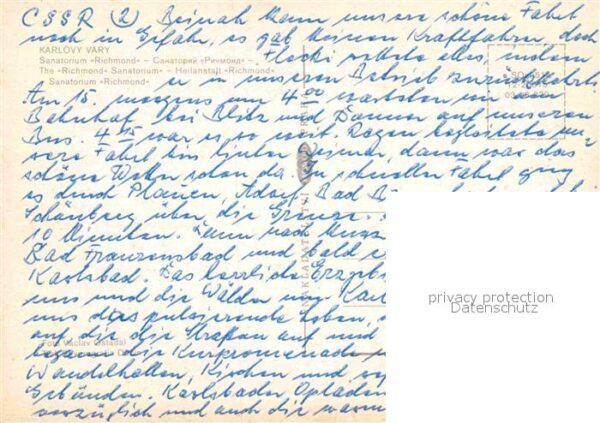 CSSR (2) Beinah kam unsere schöne Fahrt
noch in Gefahr, es gab keinen Kraftfahrer, doch
KARLOVY VARY
Flocki rettete alles, indem
Sanatorium «Richmond» – Санаторий «Ричмонд» –
The «Richmond» Sanatorium» – Heilanstalt «Richmond»
Sanatorium «Richmond»
er in unseren Betrieb zurückkehrt.
Am 15. morgens um 4.00 warteten wir vor
Bahnhof bei Blitz und Donner auf unseren
Bus. 4.15 war es so weit. Regen begleitete un-
sere Fahrt bis, dann war das
schöne Wetter schon da. In schneller Fahrt ging
es durch Plauen, Adorf, Bad
Schönberg über die Grenze.
10 Minuten. Dann nach
Bad Franzensbad und bald
Karlsbad. Das herrliche
uns und die Wälder um
uns das pulsierende Leben,
Foto Václav Ostádal
auf die die Straßen auf und
die Kurpromenade
Wandelhallen, Kirchen und
Gebäuden. Karlsbader Opladen
vorzüglich und auch die warm
NAKLADATELSTVÍ
privacy protection
Datenschutz